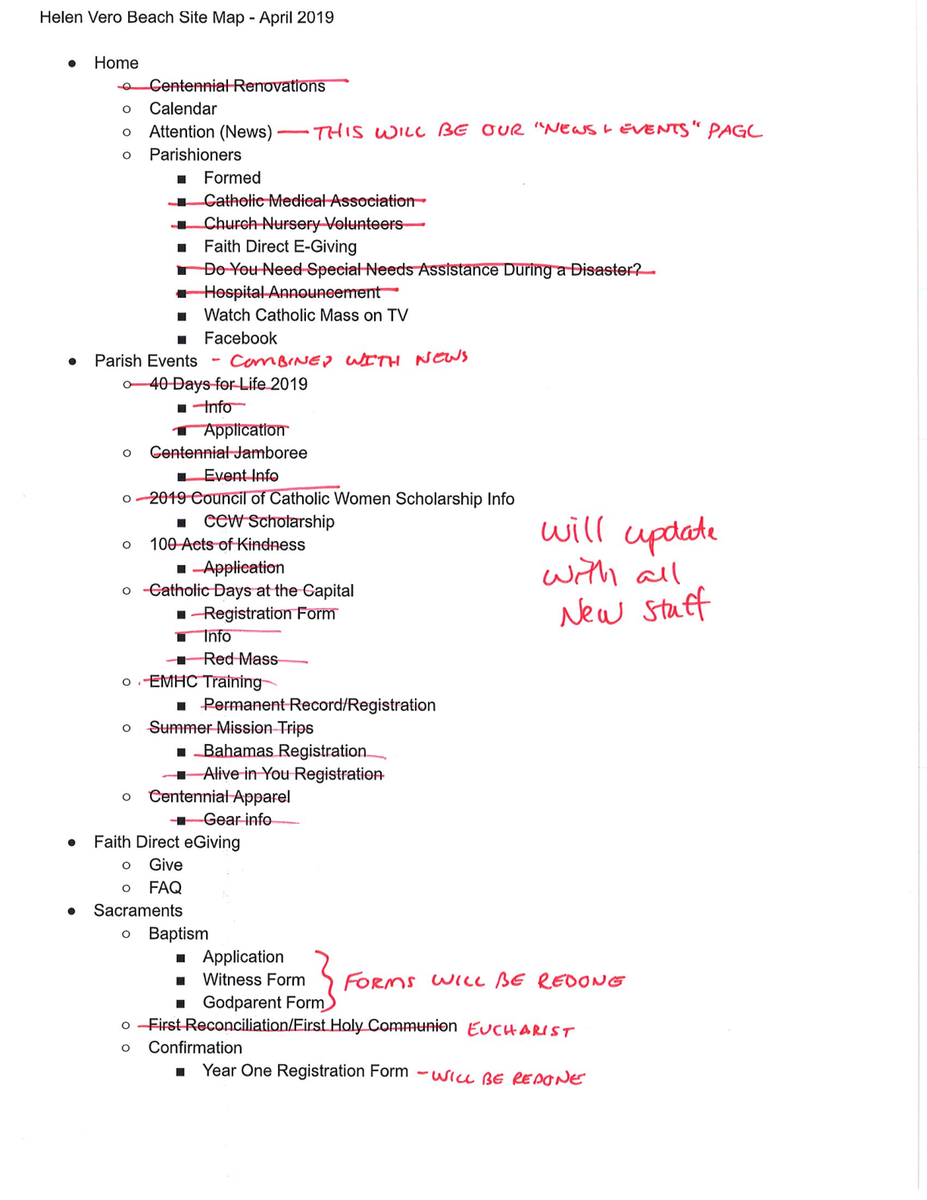 Helen Vero Beach Site Map - April 2019
● Home
○ Centennial Renovations
○ Calendar
○ Attention (News) — THIS WILL BE OUR "NEWS & EVENTS" PAGE
○ Parishioners
■ Formed
■ Catholic Medical Association
■ Church Nursery Volunteers
■ Faith Direct E-Giving
■ Do You Need Special Needs Assistance During a Disaster?
■ Hospital Announcement
■ Watch Catholic Mass on TV
■ Facebook
● Parish Events - COMBINED WITH NEWS
○ 40 Days for Life 2019
■ Info
■ Application
○ Centennial Jamboree
■ Event Info
○ 2019 Council of Catholic Women Scholarship Info
■ CCW Scholarship
○ 100 Acts of Kindness
■ Application
○ Catholic Days at the Capital
■ Registration Form
■ Info
■ Red Mass
○ EMHC Training
■ Permanent Record/Registration
○ Summer Mission Trips
■ Bahamas Registration
■ Alive in You Registration
○ Centennial Apparel
■ Gear info
will update
with all
New stuff
● Faith Direct eGiving
○ Give
○ FAQ
● Sacraments
○ Baptism
■ Application
■ Witness Form } FORMS WILL BE REDONE
■ Godparent Form
○ First Reconciliation/First Holy Communion EUCHARIST
○ Confirmation
■ Year One Registration Form - WILL BE REDONE